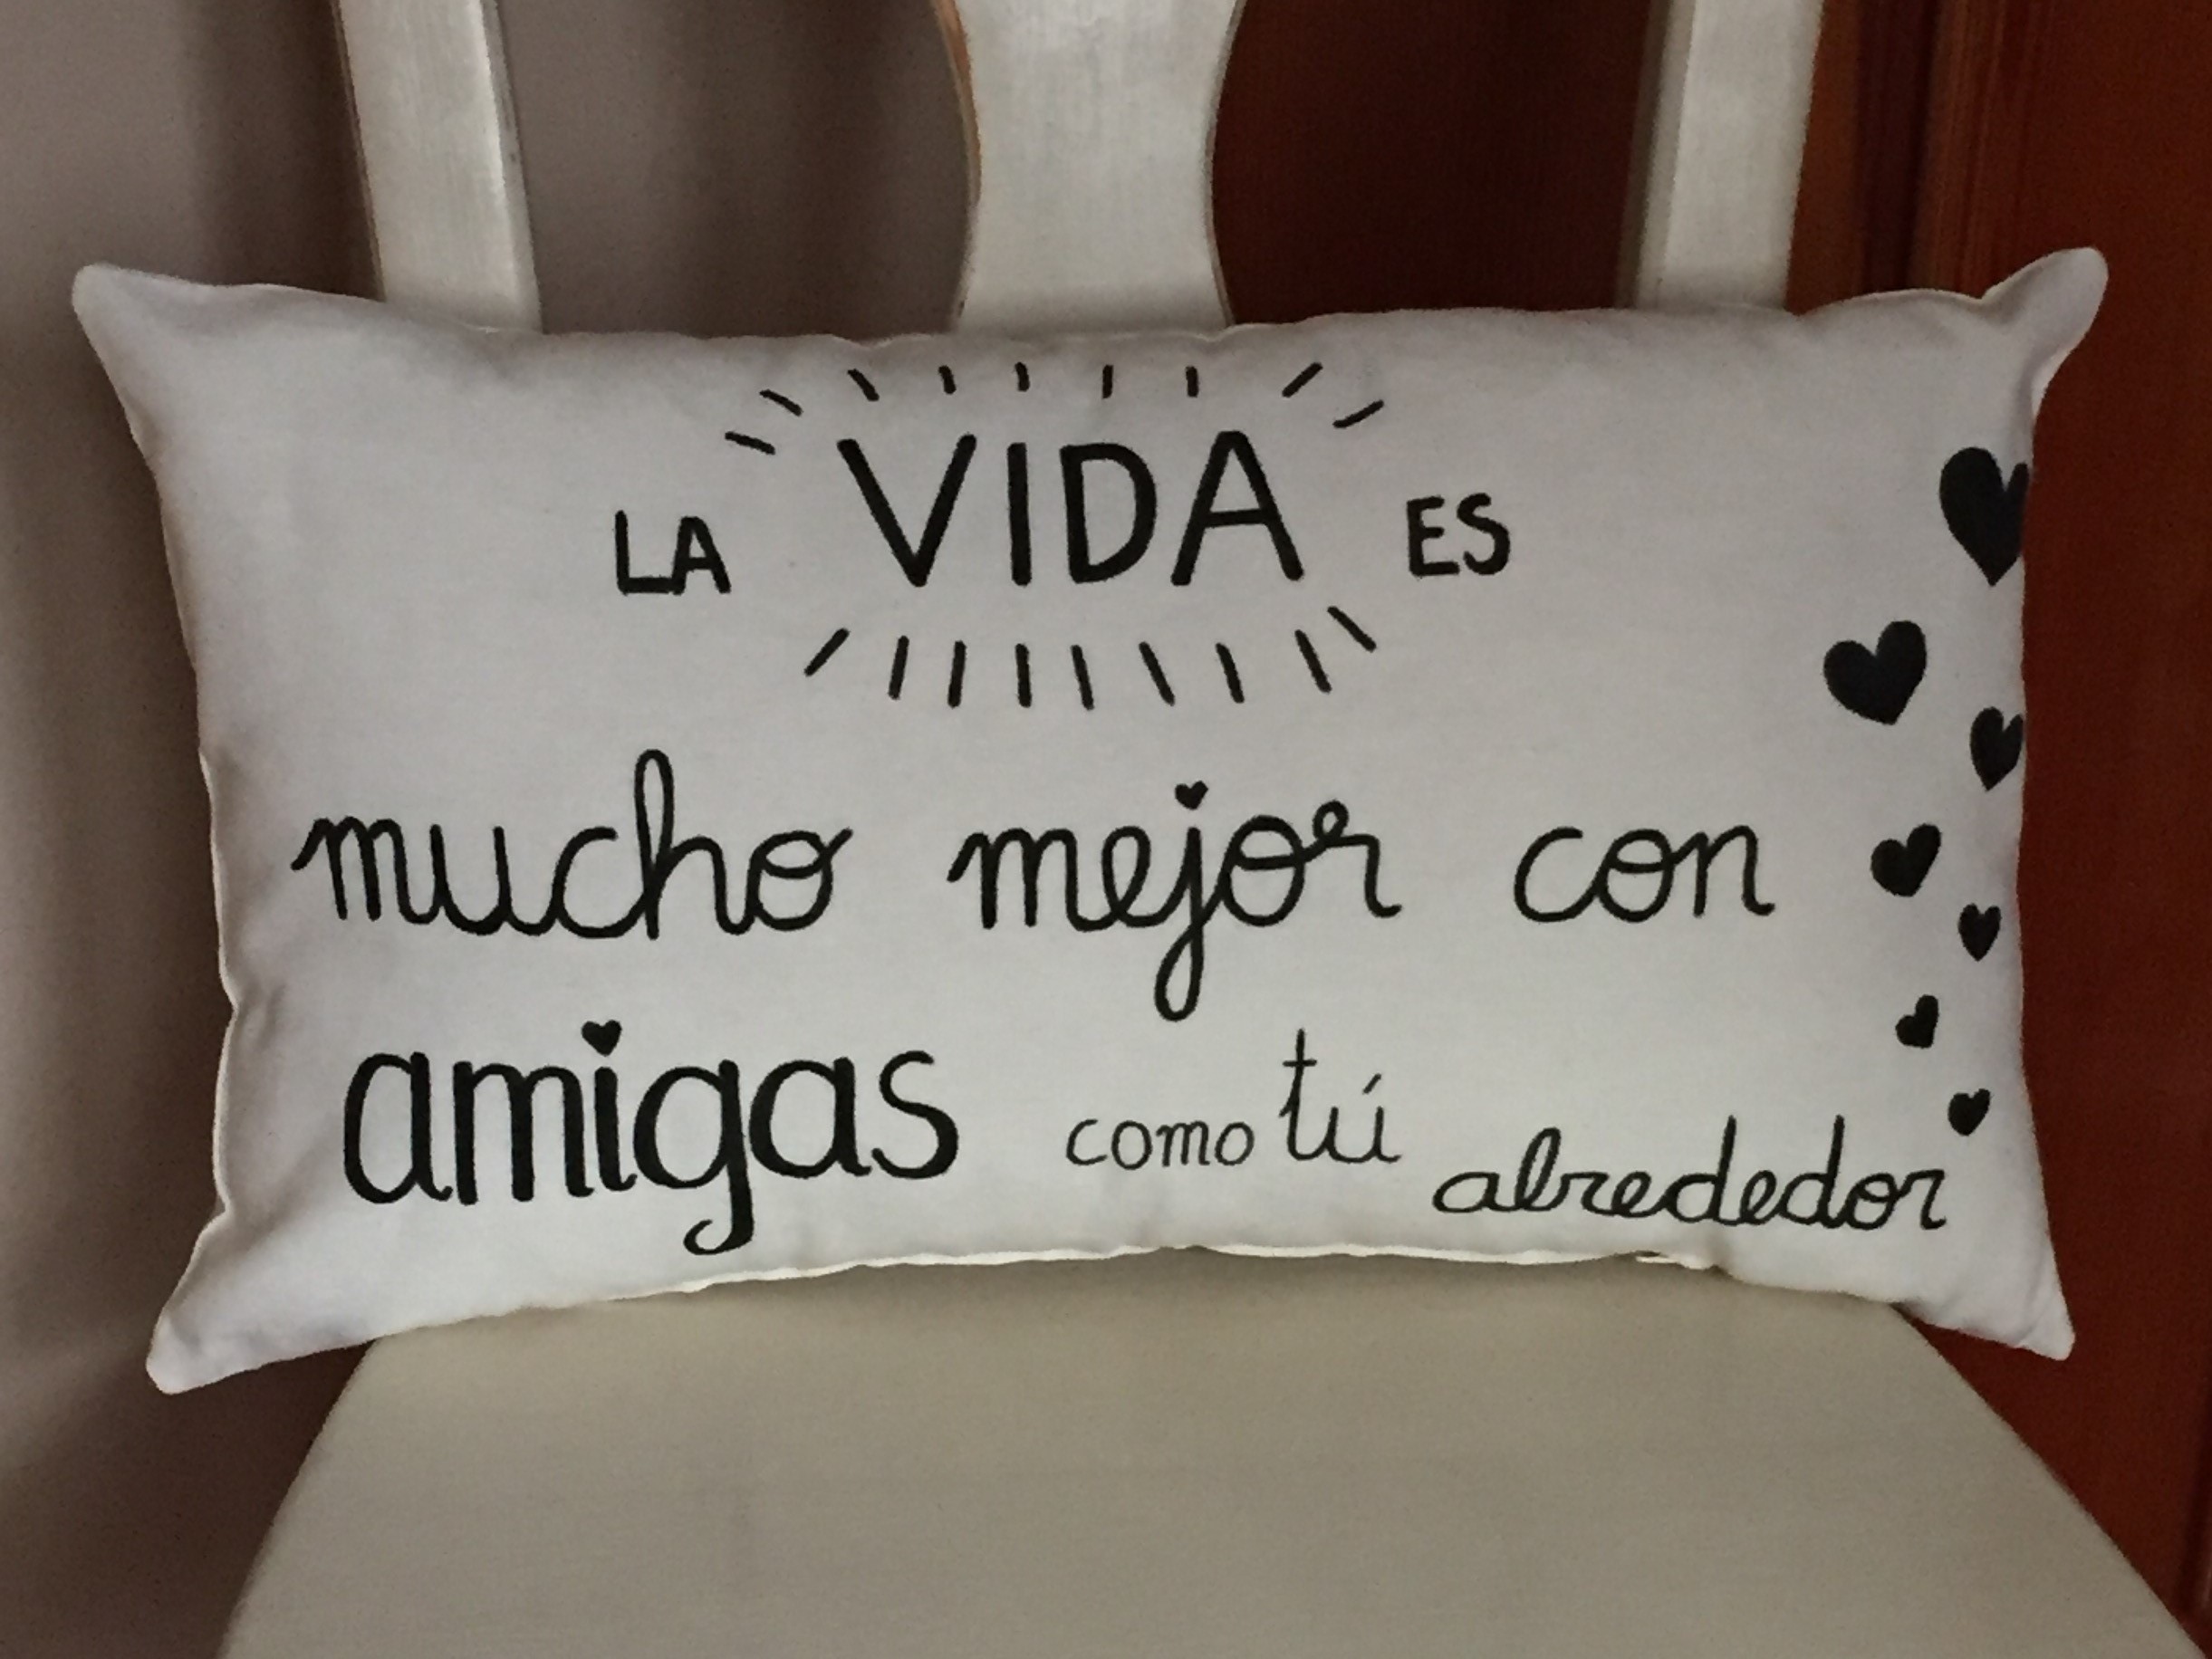 LA VIDA ES
mucho mejor con
amigas como tú alrededor